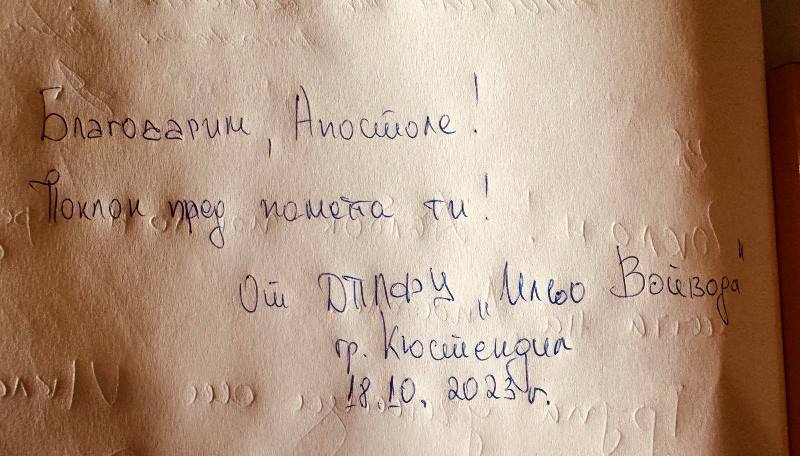 Благодарим, Апостоле!
Поклон пред паметта ти!
От ДПЛФУ „Ильо Войвода"
гр. Кюстендил
18.10.2023 г.